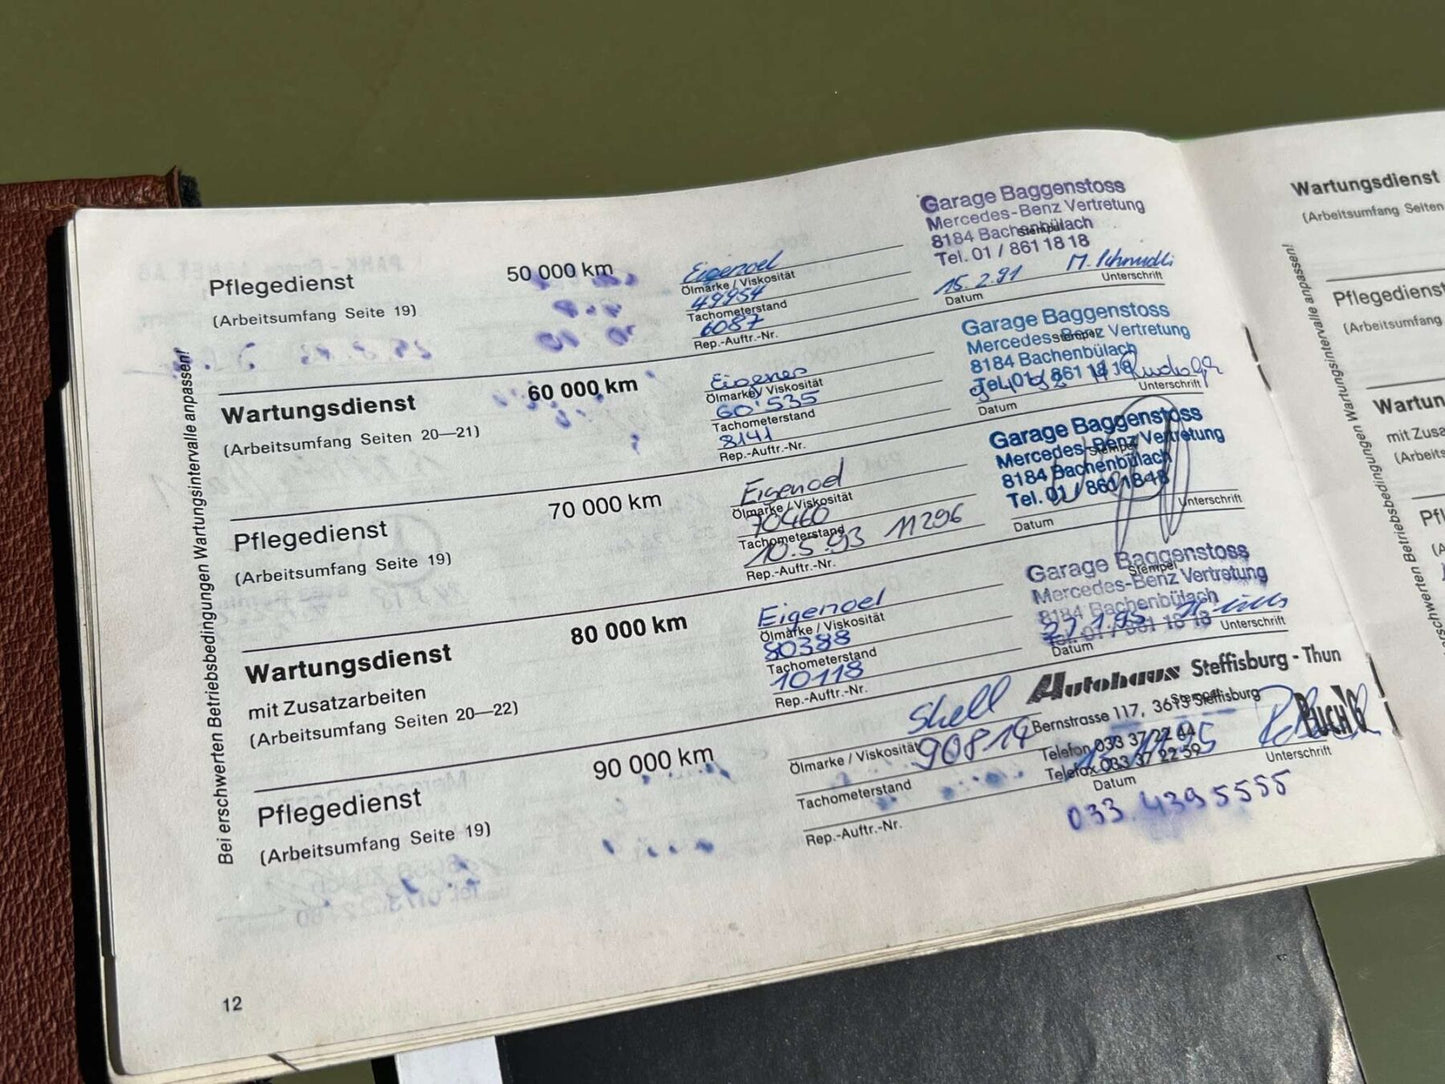 Bei erschwerten Betriebsbedingungen Wartungsintervalle anpassen!
Pflegedienst 50 000 km
(Arbeitsumfang Seite 19)
Eigenoel
Ölmarke / Viskosität
49954
Tachometerstand
6087
Rep.-Auftr.-Nr.
Garage Baggenstoss
Mercedes-Benz Vertretung
8184 Bachenbülach
Stempel
Tel. 01 / 861 18 18
15.2.91
Datum Unterschrift
Wartungsdienst 60 000 km
(Arbeitsumfang Seiten 20—21)
Ölmarke / Viskosität
60'535
Tachometerstand
8141
Rep.-Auftr.-Nr.
Garage Baggenstoss
Mercedes-Benz Vertretung
Stempel
8184 Bachenbülach
Tel. 01 / 861 18 18
Datum Unterschrift
Pflegedienst 70 000 km
(Arbeitsumfang Seite 19)
Eigenoel
Ölmarke / Viskosität
70460
Tachometerstand
10.5.93 11296
Rep.-Auftr.-Nr.
Garage Baggenstoss
Mercedes-Benz Vertretung
Stempel
8184 Bachenbülach
Tel. 01 / 861 18 18
Datum Unterschrift
Wartungsdienst 80 000 km
mit Zusatzarbeiten
(Arbeitsumfang Seiten 20—22)
Eigenoel
Ölmarke / Viskosität
80388
Tachometerstand
10118
Rep.-Auftr.-Nr.
Garage Baggenstoss
Stempel
Mercedes-Benz Vertretung
8184 Bachenbülach
Tel. 01 / 861 18 18
Datum Unterschrift
Pflegedienst 90 000 km
(Arbeitsumfang Seite 19)
Shell
Ölmarke / Viskosität
90814
Tachometerstand
Rep.-Auftr.-Nr.
Autohaus Steffisburg - Thun
Stempel
Bernstrasse 117, 3613 Steffisburg
PUCH G
Telefon 033 37 22 44
Telefax 033 37 22 59
Datum Unterschrift
033 439 5555
12
Wartungsdienst
(Arbeitsumfang Seiten
Pflegedienst
(Arbeitsumfang
mit Zusa